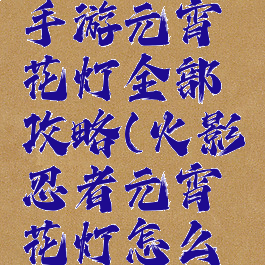 手游元宵
花灯全部
攻略(火影
忍者元宵
花灯怎么